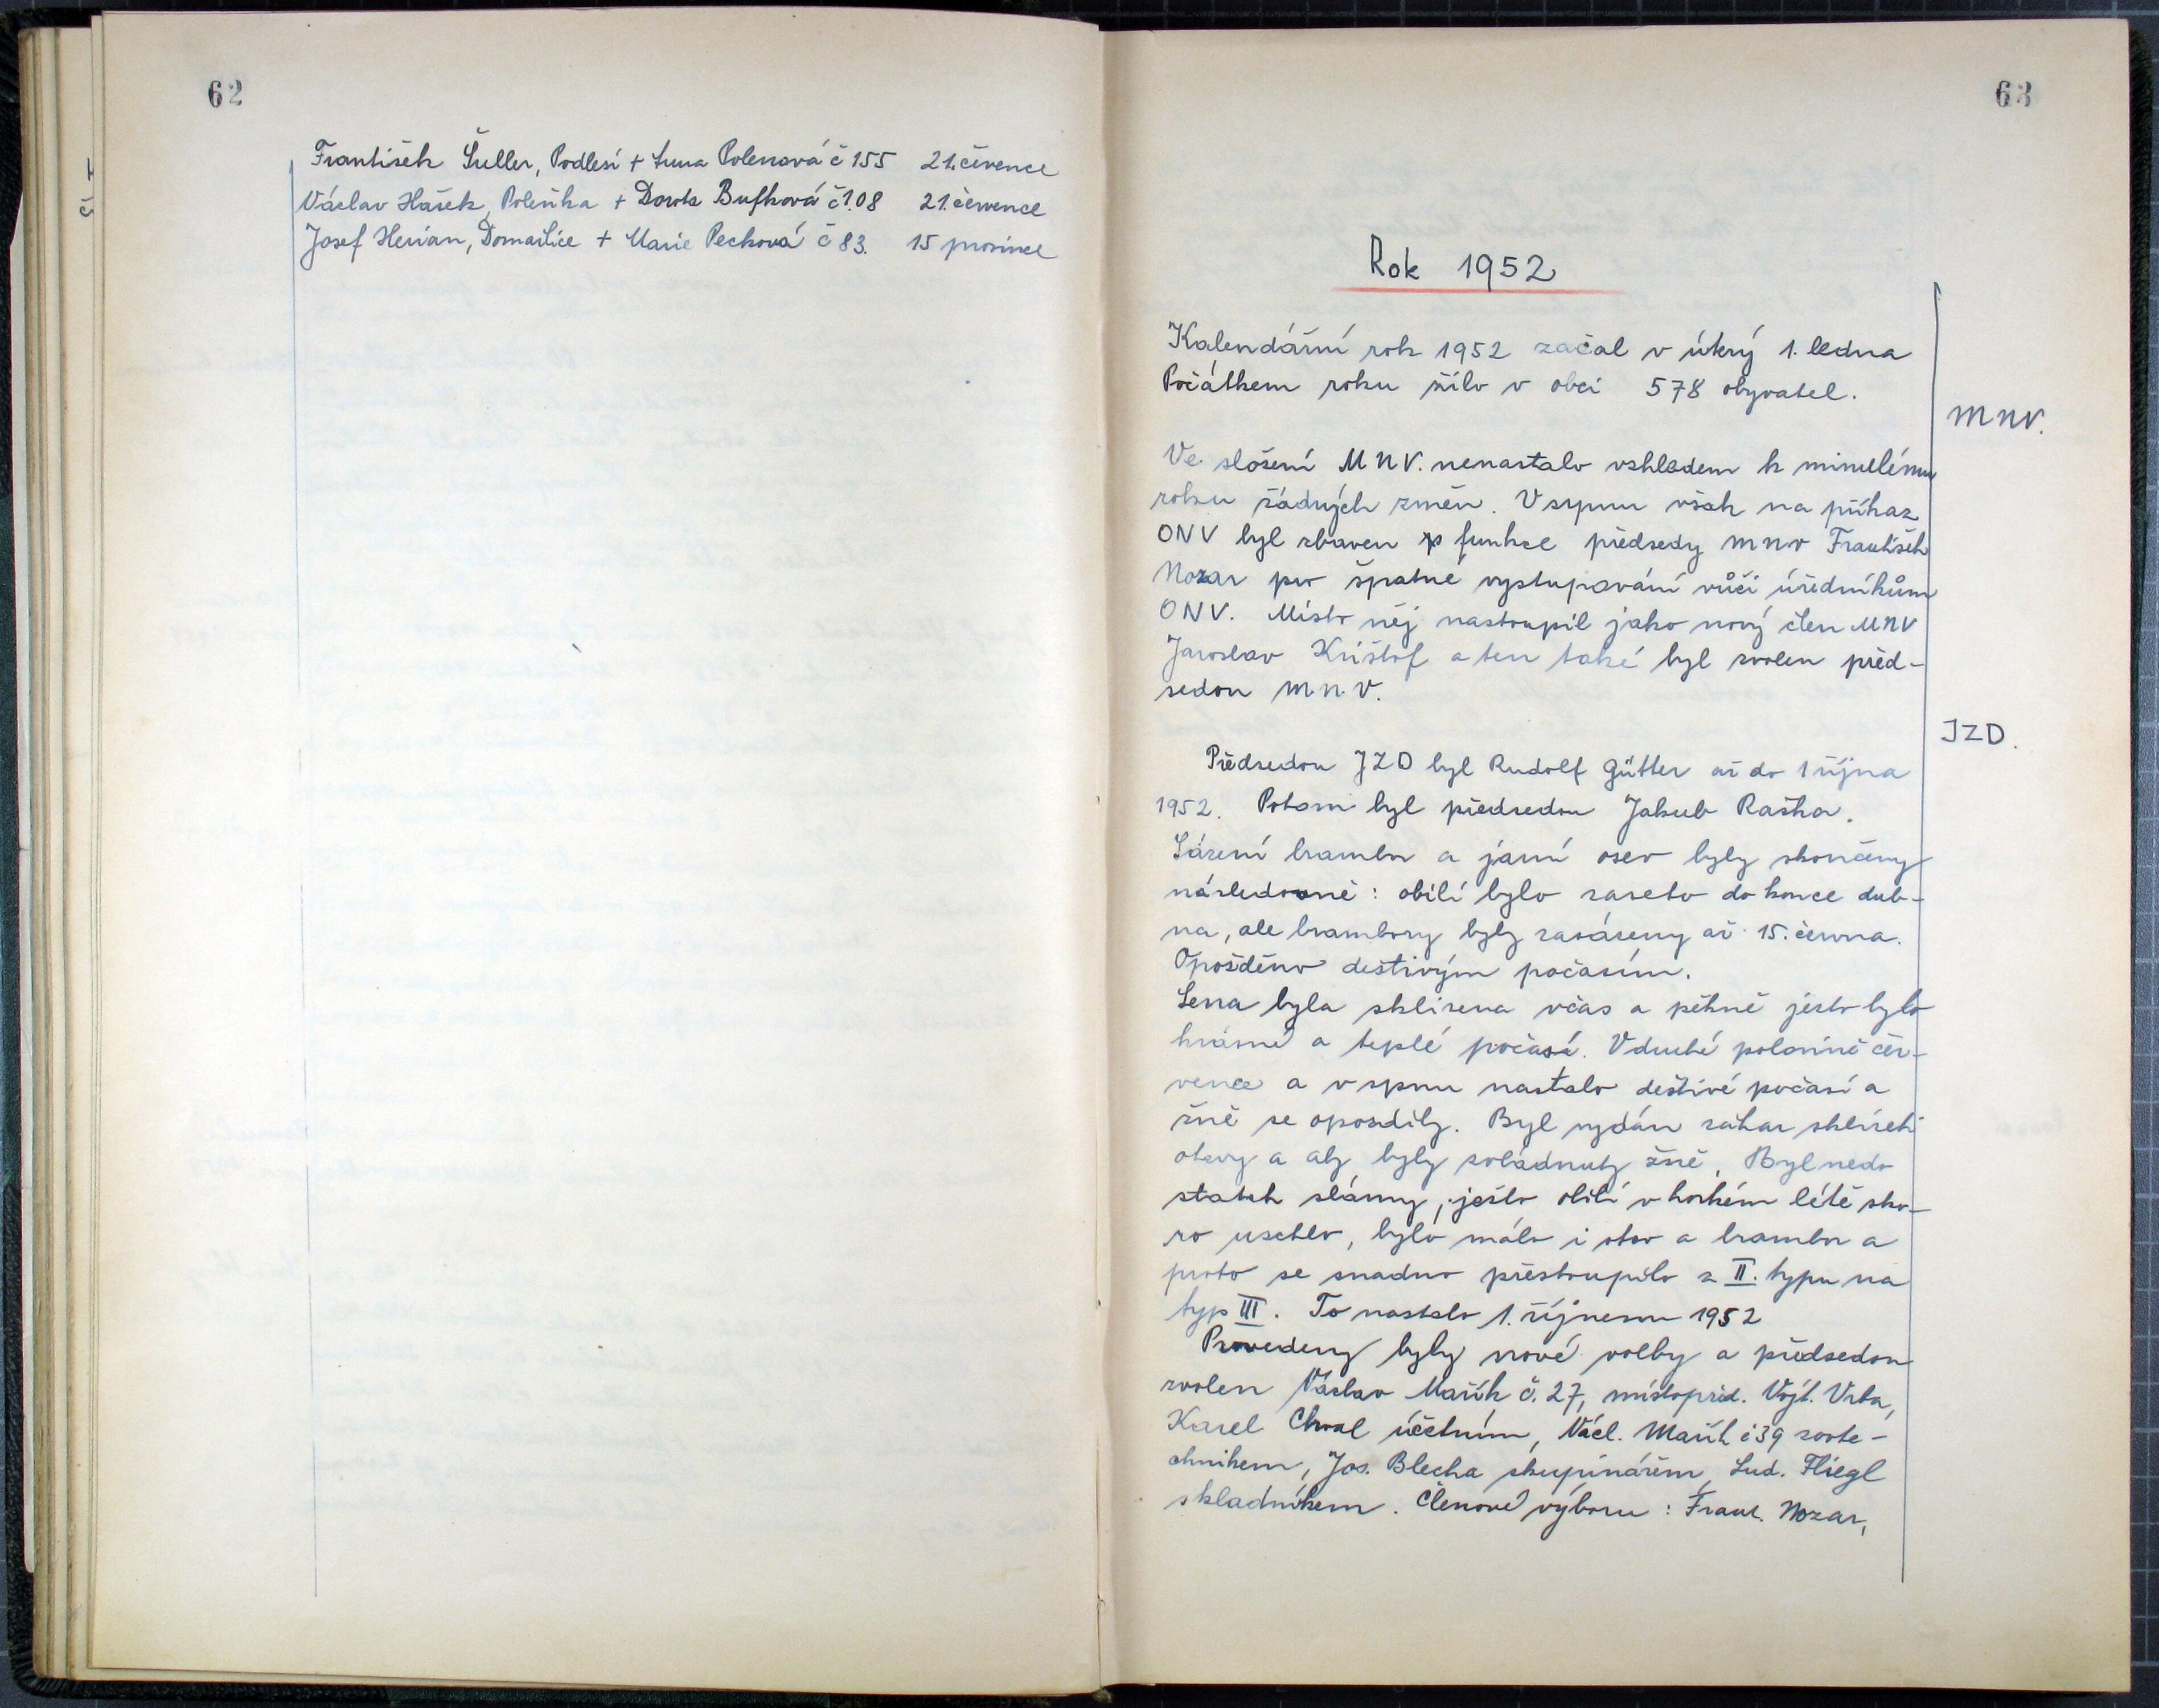 62
František Šuller, Podlesí + Anna Polenová č 155 21. července
Václav Hašek, Poleňka + Dorota Bufková č. 108 21. července
Josef Herian, Domažlice + Marie Pecková č 83. 15 prosince
63
Rok 1952
Kalendářní rok 1952 začal v úterý 1. ledna
Počátkem roku žilo v obci 578 obyvatel.
MNV.
Ve složení MNV. nenastalo vzhledem k minulému
roku žádných změn. V srpnu však na příkaz
ONV byl zbaven funkce předsedy MNV František
Nozar pro špatné vystupování vůči úředníkům
ONV. Místo něj nastoupil jako nový člen MNV
Jaroslav Krištof a ten také byl zvolen před-
sedou M.N.V.
JZD.
Předsedou JZD byl Rudolf Gütter až do 1 října
1952. Potom byl předsedou Jakub Raška.
Sázení brambor a jarní osev byly skončeny
následovně: obilí bylo zaseto do konce dub-
na, ale brambory byly zasázeny až 15. června.
Opožděno deštivým počasím.
Sena byla sklizena včas a pěkně jesto bylo
krásné a teplé počasí. V druhé polovině čer-
vence a v srpnu nastalo deštivé počasí a
žně se opozdily. Byl vydán zákaz sklízeti
otavy a aby byly zvládnuty žně. Byl nedo
statek slámy, ješto obilí v horkém létě sko-
ro uschlo, bylo málo i otav a brambor a
proto se snadno přestoupilo z II. typu na
typ III. To nastalo 1. říjnem 1952
Provedeny byly nové volby a předsedou
zvolen Václav Mařík č. 27, místopřed. Vojt. Vrba,
Karel Chval účetním, Václ. Mařík č 39 zoote-
chnikem, Jos. Blecha skupinářem, Lud. Fliegl
skladníkem. Členové výboru: Frant. Nozar,